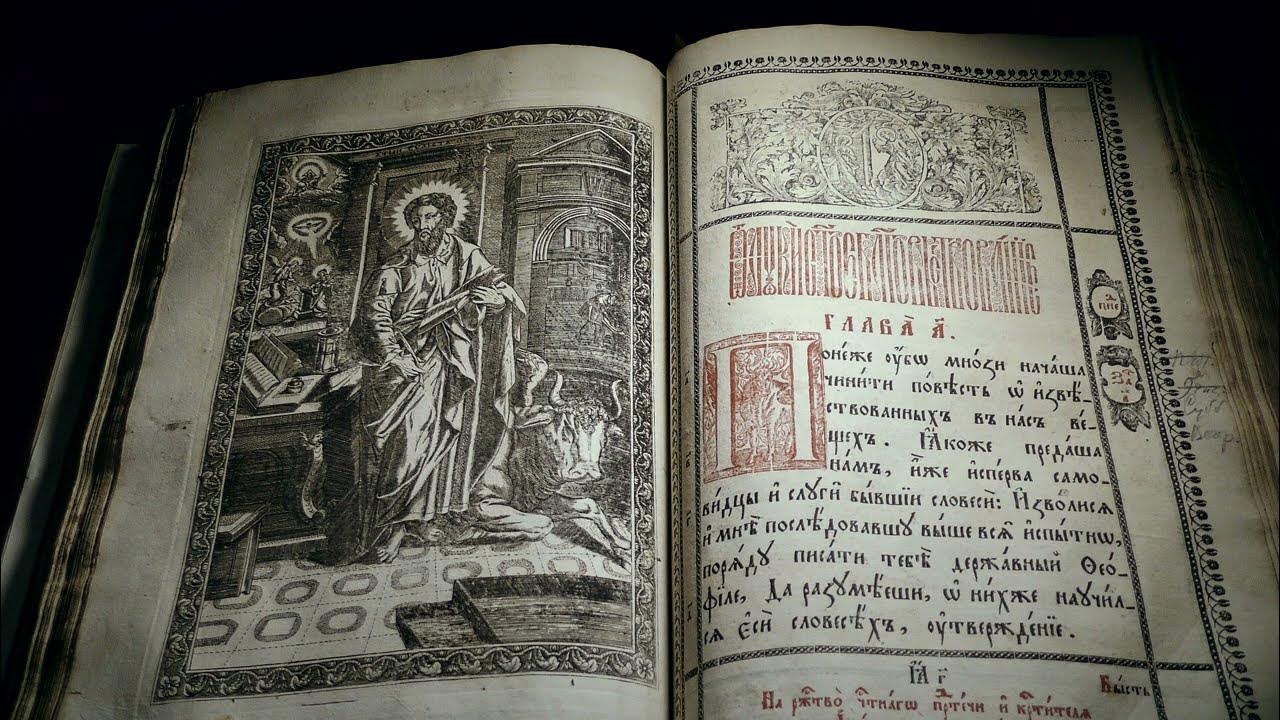 ГЛАВА̀ А҃.
Поне́же ᲂу҆́бѡ мно́зи нача́ша
чини́ти по́вѣсть ѡ҆ и҆звѣ́-
ствованныхъ въ на́съ ве́-
щехъ. Ꙗ҆́коже преда́ша
на́мъ, и҆̀же и҆спе́рва само-
ви́дцы и҆ слꙋги̑ бы́вшїи словесѝ: И҆зво́лися
и҆ мнѣ̀ послѣ́довавшꙋ вы́ше всѧ̑ и҆спы́тнѡ,
поря́дꙋ писа́ти тебѣ̀ держа́вный Ѳео́-
фїле, Да разꙋмѣ́еши, ѡ҆ ни́хже наꙋчи́л-
ся є҆сѝ словесѣ́хъ, ᲂу҆твержде́нїе.
На рж҃тво̀ чт҃на́гѡ пр҃те́чи и҆ кр҃ти́теля
Бы́сть